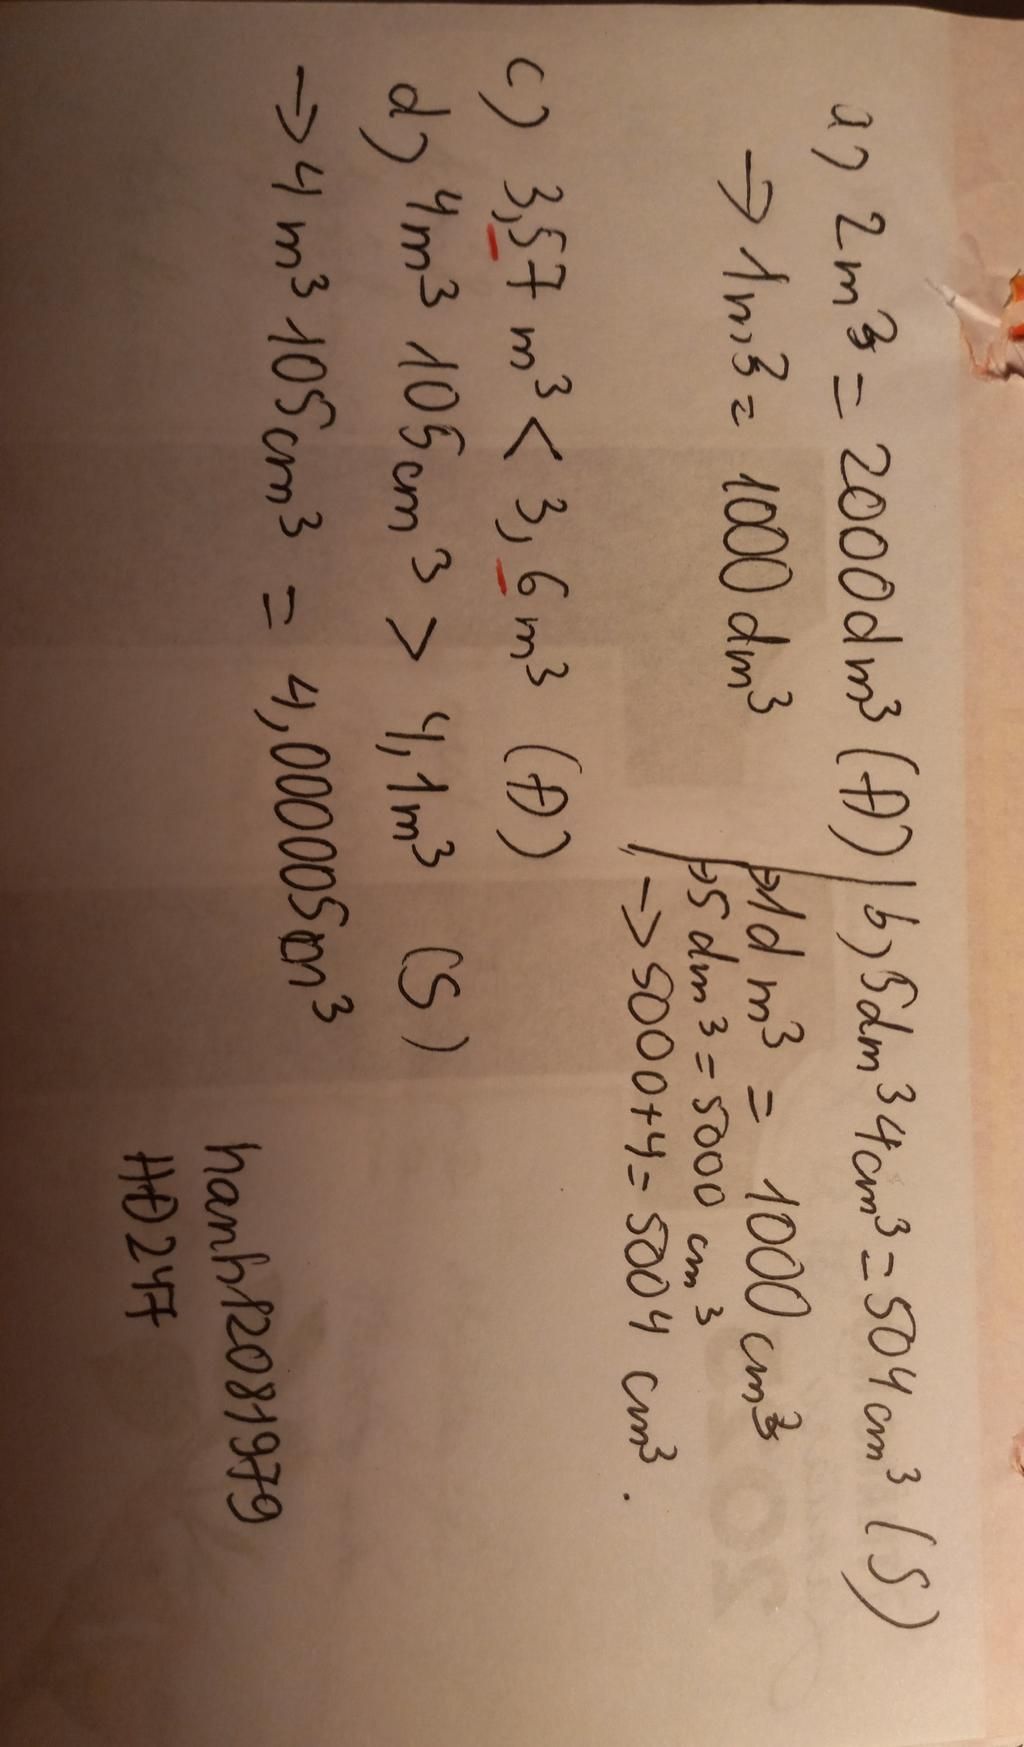 a) 2m³ = 2000dm³ (Đ)
→ 1m³ = 1000dm³
b) 5dm³ 4cm³ = 504cm³ (S)
→ 1dm³ = 1000cm³
→ 5dm³ = 5000 cm³
→ 5000+4 = 5004 cm³.
c) 3,57 m³ < 3,6m³ (Đ)
d) 4m³ 105cm³ > 4,1m³ (S)
→ 4m³ 105cm³ = 4,000005m³
hanh12081979
HĐ247